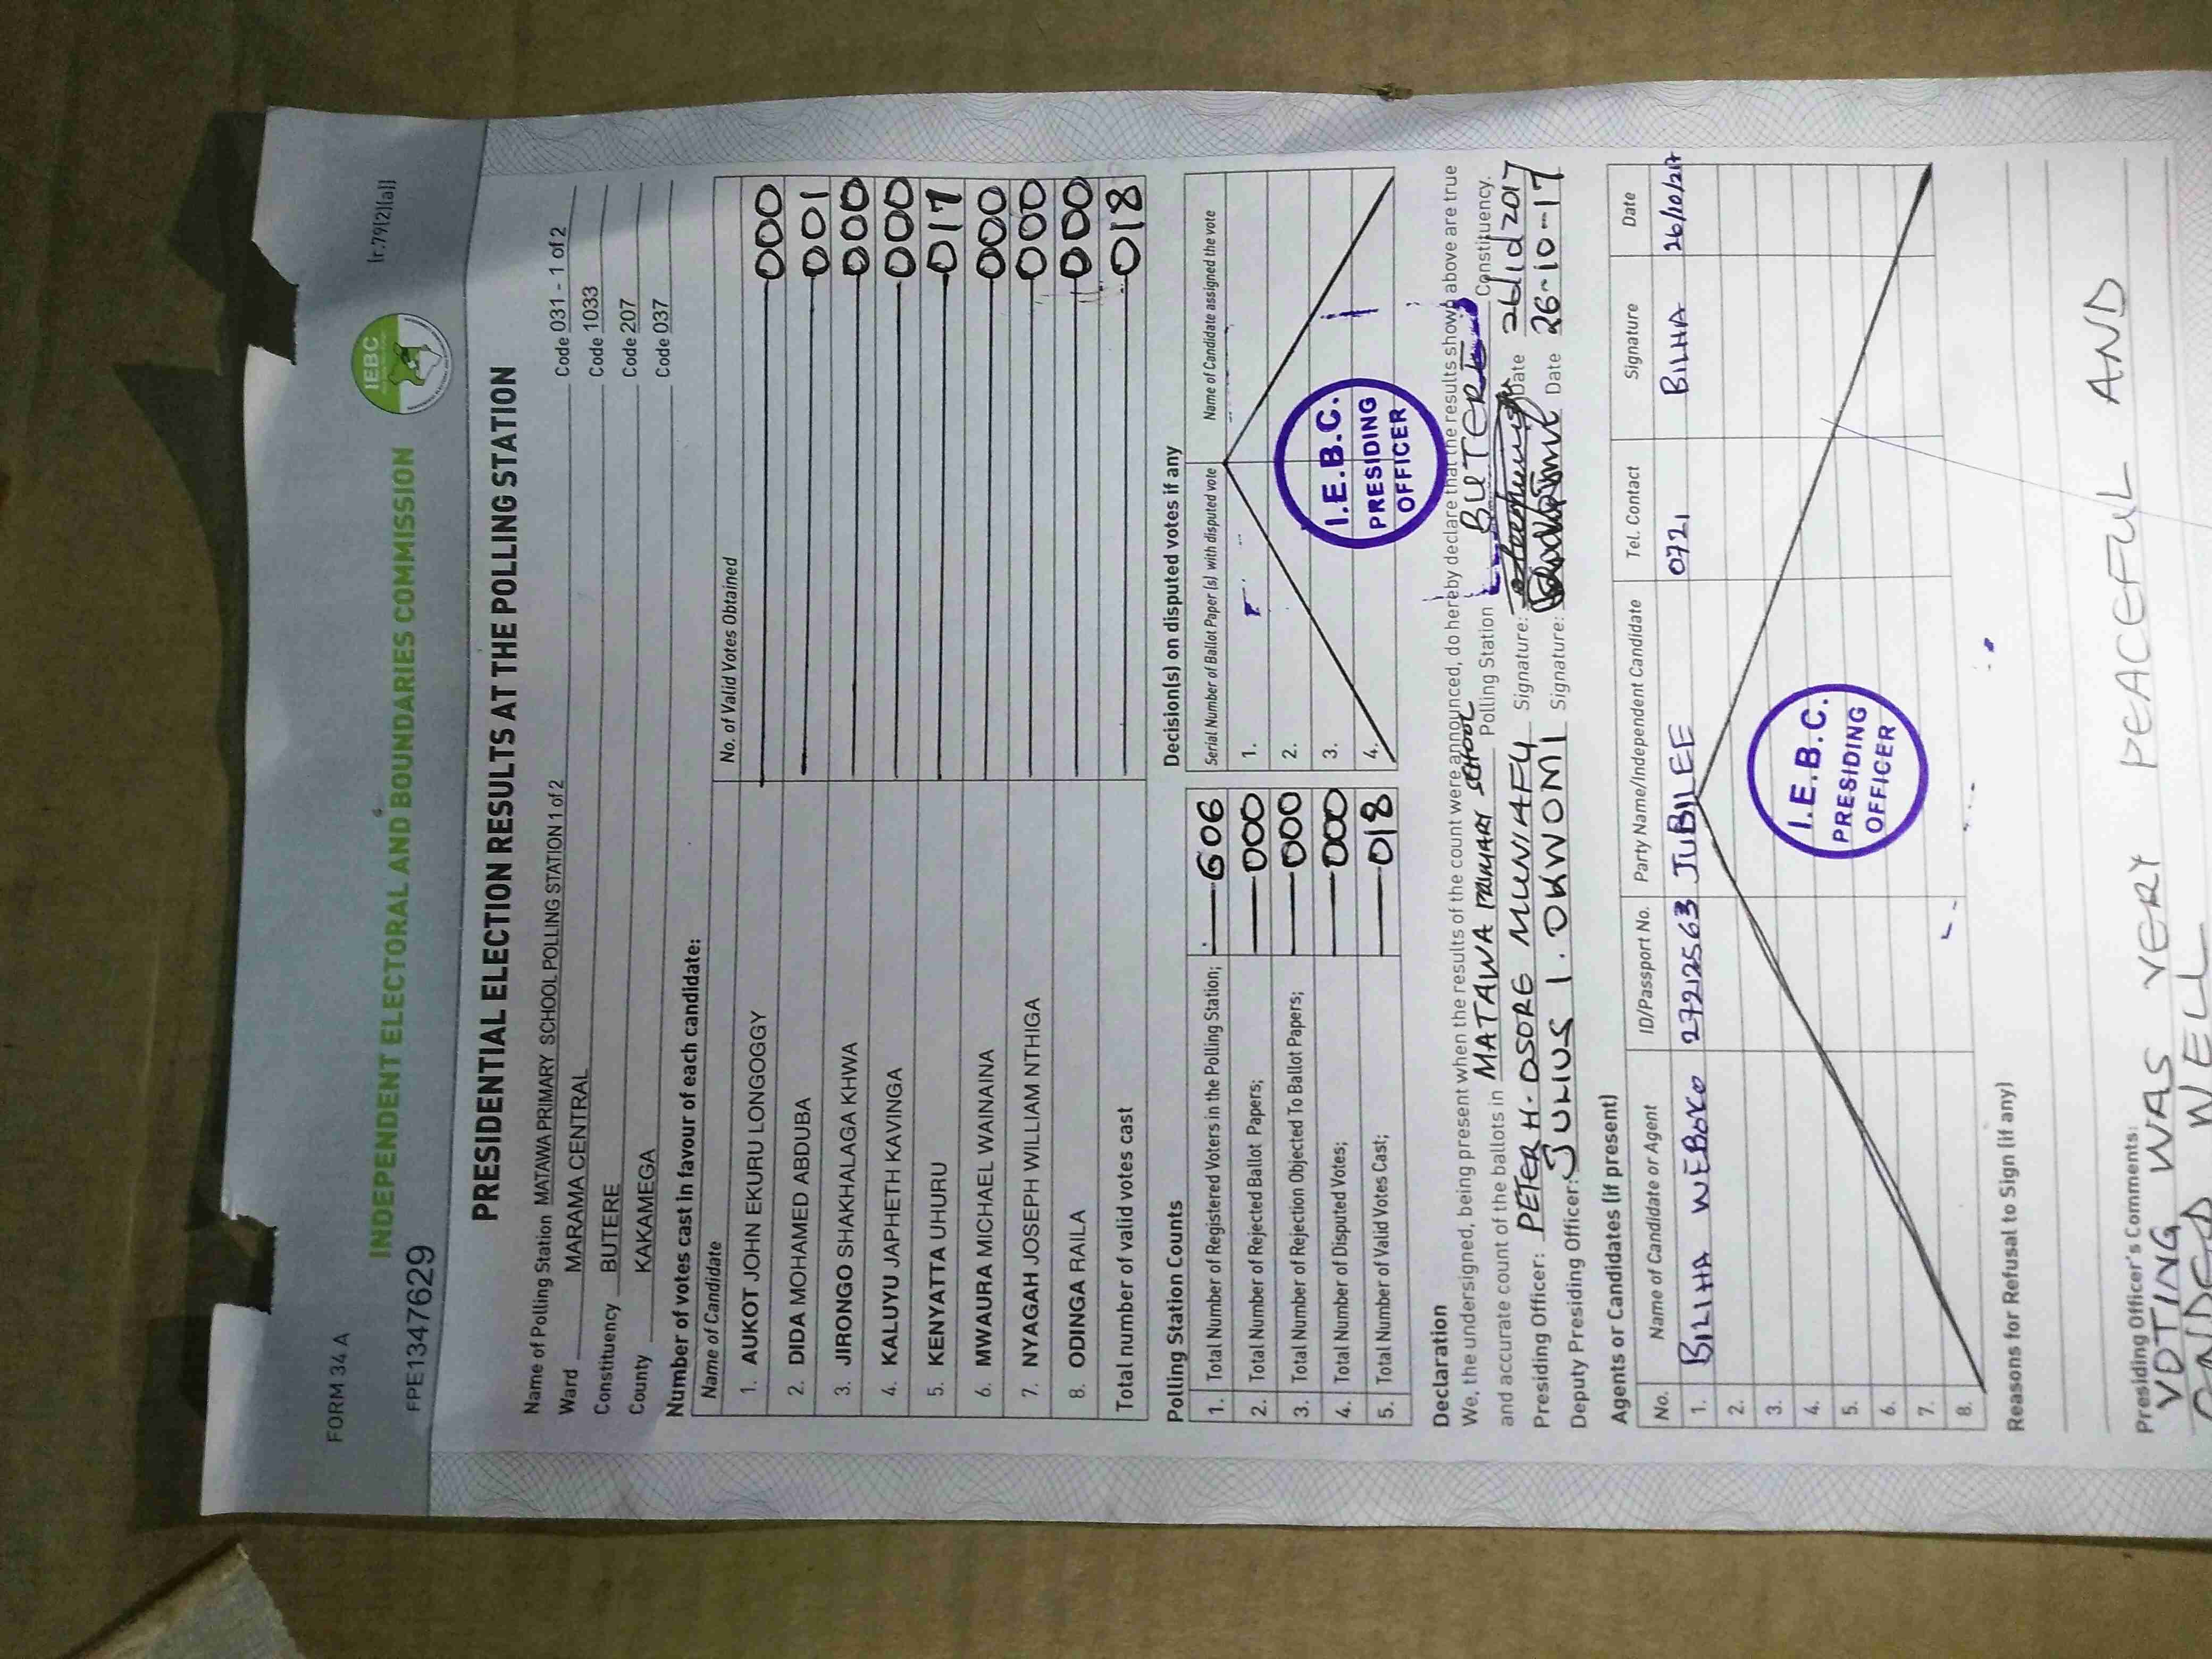 FORM 34 A
(r.79(2)(a))
IEBC
INDEPENDENT ELECTORAL AND BOUNDARIES COMMISSION
FPE1347629
PRESIDENTIAL ELECTION RESULTS AT THE POLLING STATION
Name of Polling Station MATAWA PRIMARY SCHOOL POLLING STATION 1 of 2 Code 031 - 1 of 2
Ward MARAMA CENTRAL Code 1033
Constituency BUTERE Code 207
County KAKAMEGA Code 037
Number of votes cast in favour of each candidate:
Name of Candidate No. of Valid Votes Obtained
1. AUKOT JOHN EKURU LONGOGGY 000
2. DIDA MOHAMED ABDUBA 001
3. JIRONGO SHAKHALAGA KHWA 000
4. KALUYU JAPHETH KAVINGA 000
5. KENYATTA UHURU 017
6. MWAURA MICHAEL WAINAINA 000
7. NYAGAH JOSEPH WILLIAM NTHIGA 000
8. ODINGA RAILA 000
Total number of valid votes cast 018
Polling Station Counts
1. Total Number of Registered Voters in the Polling Station; 606
2. Total Number of Rejected Ballot Papers; 000
3. Total Number of Rejection Objected To Ballot Papers; 000
4. Total Number of Disputed Votes; 000
5. Total Number of Valid Votes Cast; 018
Decision(s) on disputed votes if any
Serial Number of Ballot Paper (s) with disputed vote Name of Candidate assigned the vote
1.
2.
3.
4.
I.E.B.C.
PRESIDING
OFFICER
Declaration
We, the undersigned, being present when the results of the count were announced, do hereby declare that the results shown above are true
and accurate count of the ballots in MATAWA PRIMARY SCHOOL Polling Station BUTERE Constituency.
Presiding Officer: PETER H. OSORE MUNIAFU Signature: Date 26/10/2017
Deputy Presiding Officer: JULIUS I. OKWOMI Signature: Date 26-10-17
Agents or Candidates (if present)
No. Name of Candidate or Agent ID/Passport No. Party Name/Independent Candidate Tel. Contact Signature Date
1. BILHA WEBOKO 27212563 JUBILEE 0721 BILHA 26/10/217
2.
3.
4.
5.
6.
7.
8.
I.E.B.C.
PRESIDING
OFFICER
Reasons for Refusal to Sign (if any)
Presiding Officer's Comments:
VOTING WAS VERY PEACEFUL AND
WELL